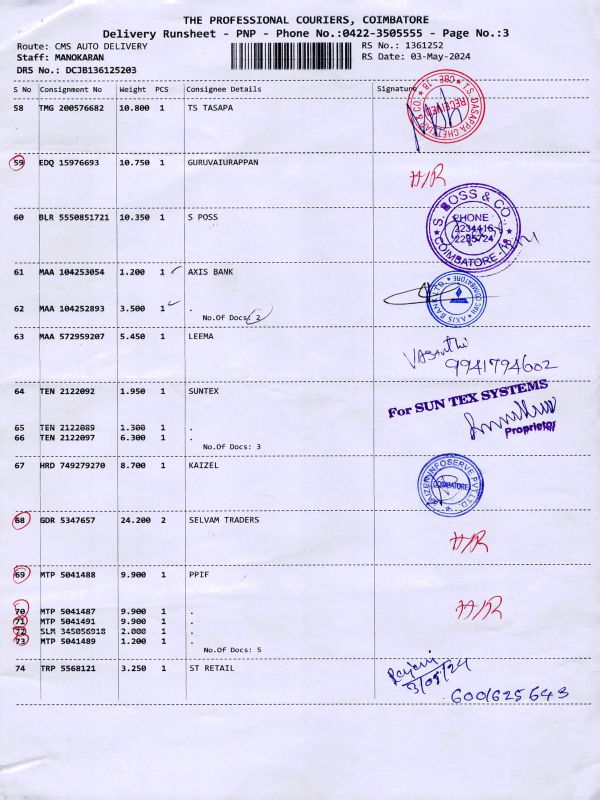 THE PROFESSIONAL COURIERS, COIMBATORE
Delivery Runsheet - PNP - Phone No.:0422-3505555 - Page No.:3
Route: CMS AUTO DELIVERY
RS No.: 1361252
Staff: MANOKARAN
RS Date: 03-May-2024
DRS No.: DCJB136125203
S No Consignment No Weight PCS Consignee Details Signature
58 TMG 200576682 10.800 1 TS TASAPA
RECEIVED
59 EDQ 15976693 10.750 1 GURUVAIURAPPAN
H/R
60 BLR 5550851721 10.350 1 S POSS
S. BOSS & CO.,
PHONE
2234416
2235724
COIMBATORE
61 MAA 104253054 1.200 1 AXIS BANK
62 MAA 104252893 3.500 1 .
No.Of Docs: 2
AXIS BANK LTD.
COIMBATORE
63 MAA 572959207 5.450 1 LEEMA
Vasanthi
9941794602
64 TEN 2122092 1.950 1 SUNTEX
For SUN TEX SYSTEMS
Proprietor
65 TEN 2122089 1.300 1 .
66 TEN 2122097 6.300 1 .
No.Of Docs: 3
67 HRD 749279270 8.700 1 KAIZEL
KAIZEN INFOSERVE PVT. LTD.
COIMBATORE
68 GDR 5347657 24.200 2 SELVAM TRADERS
H/R
69 MTP 5041488 9.900 1 PPIF
70 MTP 5041487 9.900 1 .
71 MTP 5041491 9.900 1 .
72 SLM 345056918 2.000 1 .
73 MTP 5041489 1.200 1 .
H/R
No.Of Docs: 5
74 TRP 5568121 3.250 1 ST RETAIL
3/05/24
6001625643